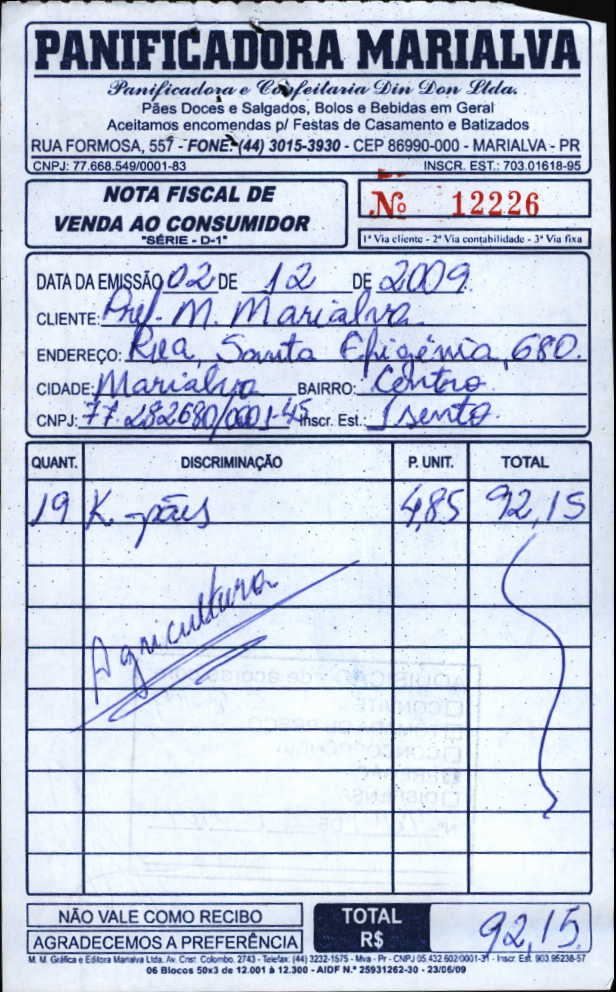 PANIFICADORA MARIALVA
Panificadora e Confeitaria Din Don Ltda.
Pães Doces e Salgados, Bolos e Bebidas em Geral
Aceitamos encomendas p/ Festas de Casamento e Batizados
RUA FORMOSA, 557 - FONE: (44) 3015-3930 - CEP 86990-000 - MARIALVA - PR
CNPJ: 77.668.549/0001-83 INSCR. EST.: 703.01618-95
NOTA FISCAL DE
VENDA AO CONSUMIDOR
"SÉRIE - D-1"
Nº 12226
1ª Via cliente - 2ª Via contabilidade - 3ª Via fixa
DATA DA EMISSÃO 02 DE 12 DE 2009
CLIENTE: Pref. M. Marialva
ENDEREÇO: Rua, Santa Efigênia, 680.
CIDADE: Marialva BAIRRO: Centro
CNPJ: 77.282680/0001-45 Inscr. Est.: Isento
QUANT. DISCRIMINAÇÃO P. UNIT. TOTAL
19 K - pães 4,85 92,15
Agricultura
NÃO VALE COMO RECIBO
AGRADECEMOS A PREFERÊNCIA
TOTAL R$ 92,15
M. M. Gráfica e Editora Marialva Ltda. Av. Crist. Colombo, 2743 - Telefax: (44) 3232-1575 - Mva - Pr - CNPJ 05.432.602/0001-31 - Inscr. Est. 903.95238-57
06 Blocos 50x3 de 12.001 à 12.300 - AIDF N.º 25931262-30 - 23/06/09